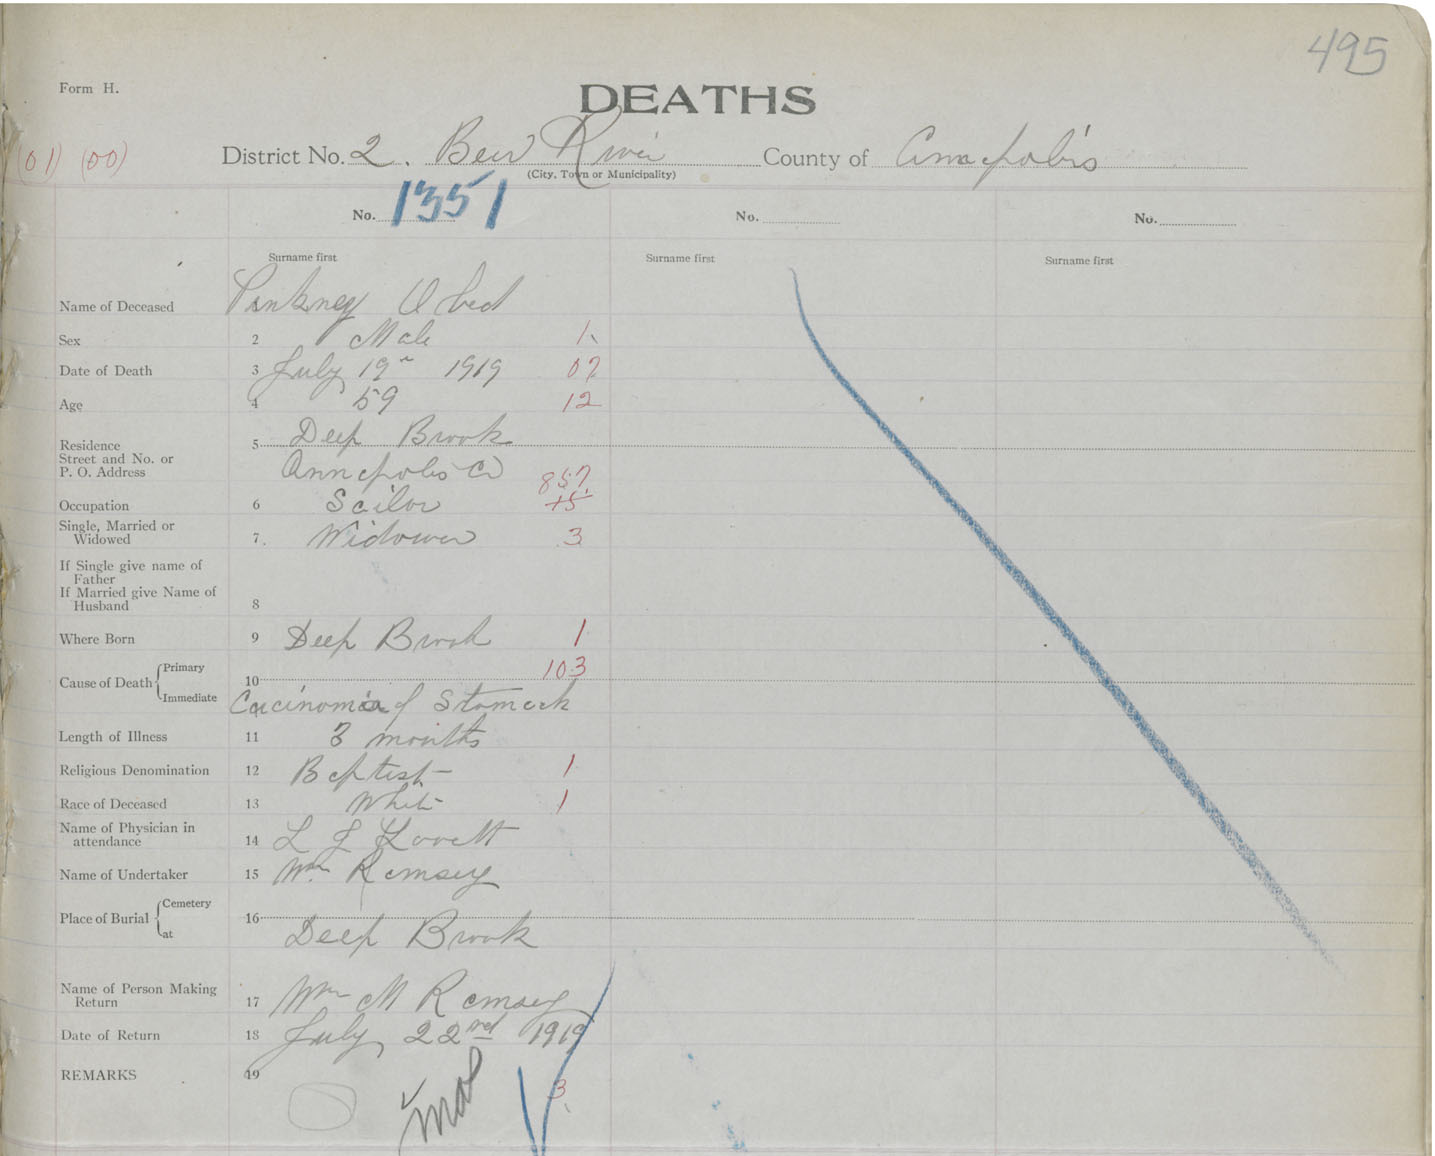 495
Form H.
DEATHS
(01) (00)
District No. 2. Bear River County of Annapolis
(City, Town or Municipality)
No. 1351 No. No.
Surname first Surname first Surname first
Name of Deceased Pinkney Obed
Sex 2 Male 1
Date of Death 3 July 19th 1919 07
Age 4 59 12
Residence 5 Deep Brook
Street and No. or
P. O. Address Annapolis Co
857
Occupation 6 Sailor 15
Single, Married or
Widowed 7. Widower 3
If Single give name of
Father
If Married give Name of
Husband 8
Where Born 9 Deep Brook 1
Primary 103
Cause of Death 10
Immediate Carcinoma of Stomach
Length of Illness 11 3 months
Religious Denomination 12 Baptist 1
Race of Deceased 13 White 1
Name of Physician in
attendance 14 L J Lovett
Name of Undertaker 15 Wm Ramsey
Cemetery
Place of Burial 16
at Deep Brook
Name of Person Making
Return 17 Wm M Ramsey
Date of Return 18 July 22nd 1919
REMARKS 19
3